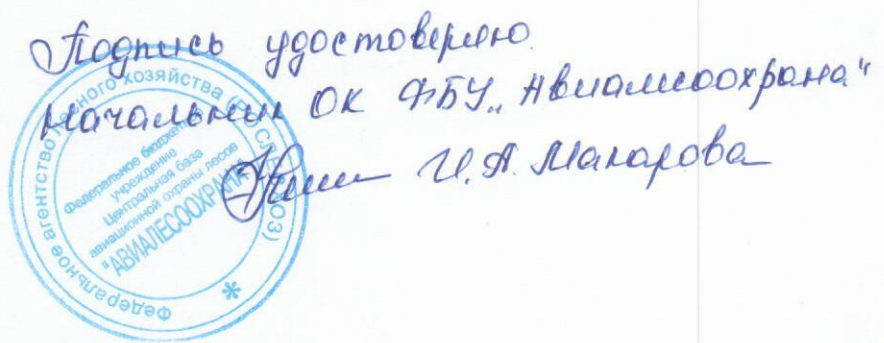 Подпись удостоверяю.
Начальник ОК ФБУ „Авиалесоохрана“
И.А. Макарова
Федеральное агентство лесного хозяйства (РОСЛЕСХОЗ)
Федеральное бюджетное
учреждение
Центральная база
авиационной охраны лесов
"АВИАЛЕСООХРАНА"